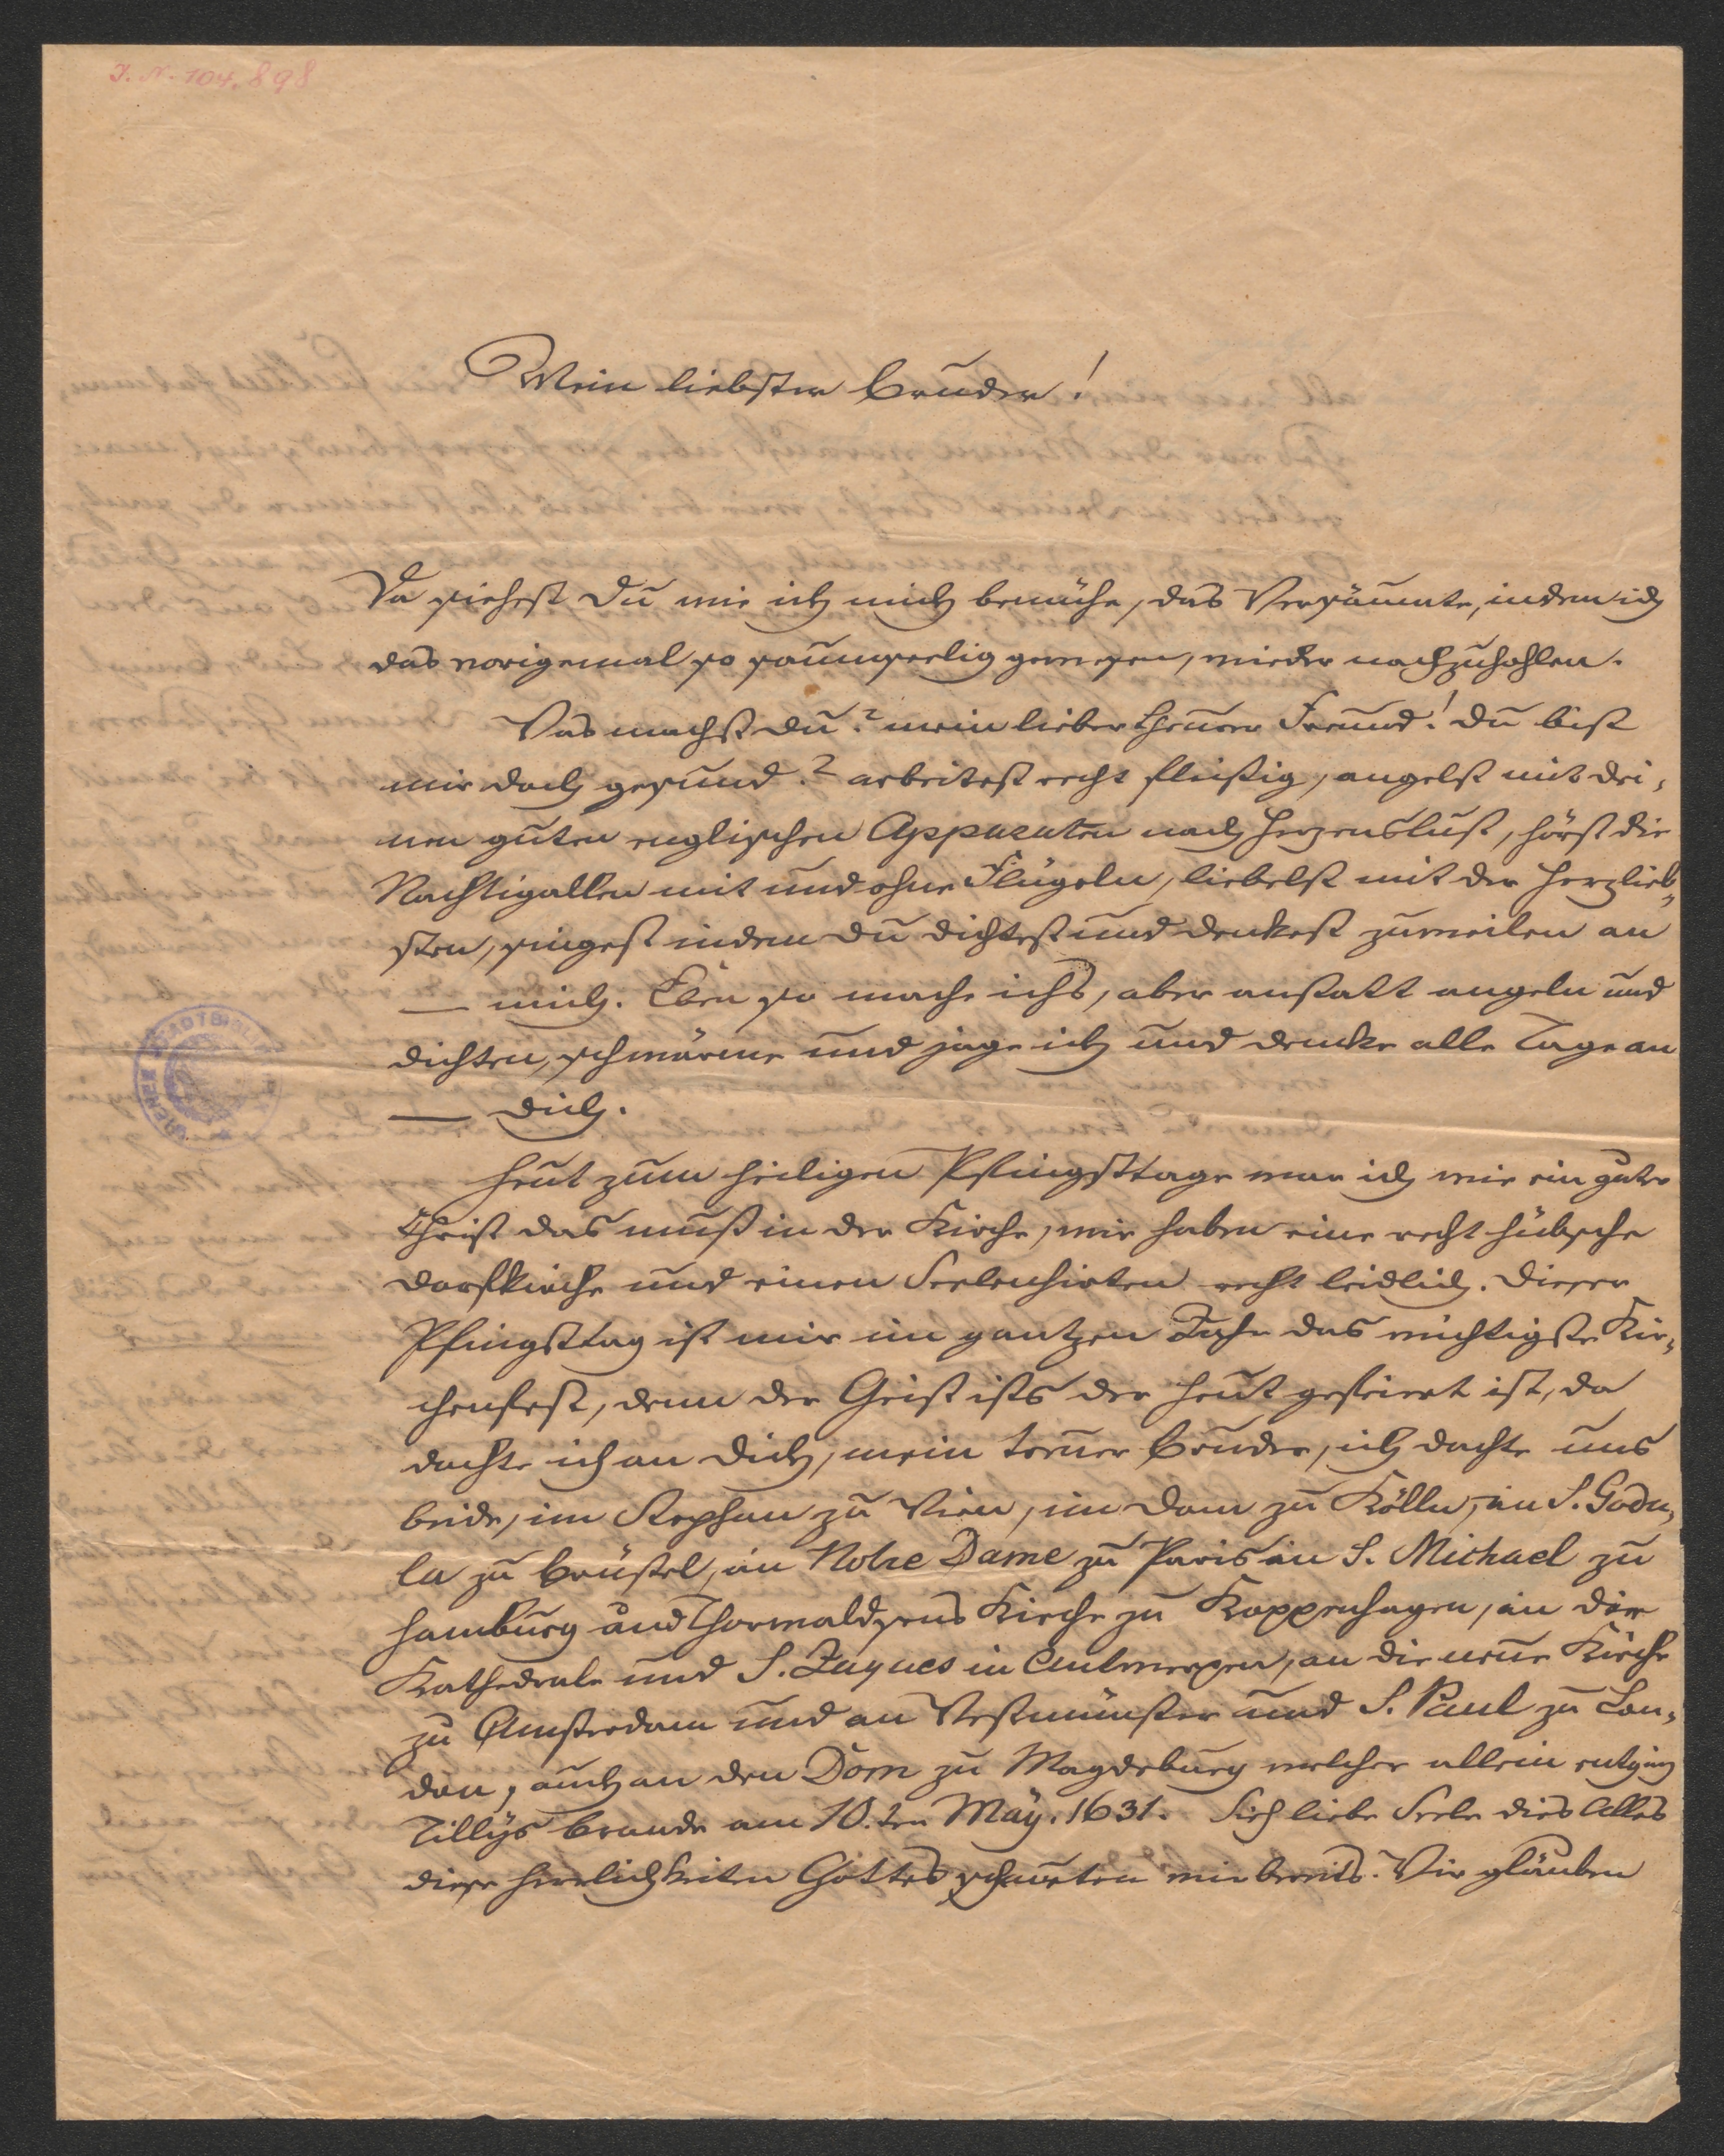 I. N. 104.898
Mein liebster Bruder!
Da siehest Du wie ich mich bemühe, das Versäumte, indem ich
das vorigemal so saumseelig gewesen, wieder nachzuhohlen.
Was machst du? mein lieber theurer Freund! du bist
mir doch gesund? arbeitest recht fleißig, angelst mit dei,
nen guten englischen Apparaten nach Herzenslust, hörst die
Nachtigallen mit und ohne Flügeln, liebelst mit der Herzlieb„
sten, singest indem du dichtest und denkest zuweilen an
— mich. Eben so mache ichs, aber anstatt angeln und
dichten, schwärme und jage ich und denke alle Tage an
— dich.
Heut zum heiligen Pfingsttage war ich wie ein guter
Christ das muß in der Kirche, wir haben eine recht hübsche
Dorfkirche und einen Seelenhirten recht leidlich. Dieser
Pfingsttag ist mir im gantzen Jahr das wichtigste Kir„
chenfest, denn der Geist ists der heut gefeiert ist, da
dachte ich an Dich, mein teurer Bruder, ich dachte uns
beide, im Stephan zu Wien, im Dom zu Kölln, in S. Gudu„
la zu Brüßel, in Notre Dame zu Paris in S. Michael zu
Hamburg und Thorwaldsens Kirche zu Koppenhagen, in der
Kathedrale und S. Jaques in Antwerpen, an die neue Kirche
zu Amsterdam und an Westmünster und S. Paul zu Lon„
don, auch an den Dom zu Magdeburg welcher allein entging
Tillÿs Brande am 10.ten Maÿ. 1631. Sieh liebe Seele dies Alles
diese Herrlichkeiten Gottes schauten wir bereits. Wir glauben
WIENER STADTBIBLIOTHEK